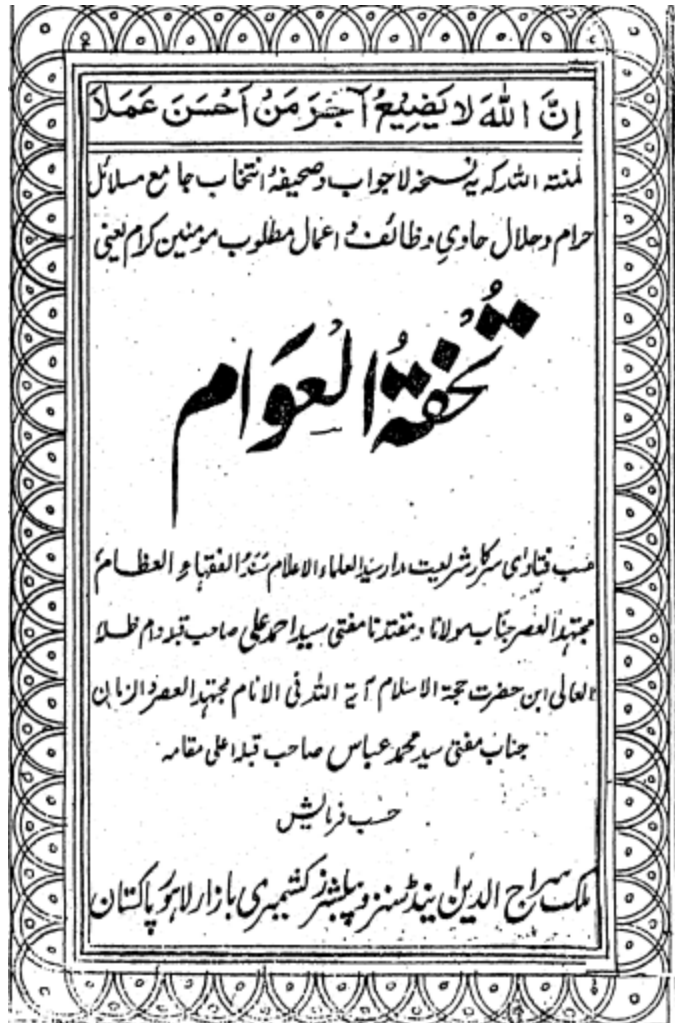 إِنَّ اللهَ لَا يَضِيعُ آجْرَ مَنْ آحْسَنَ عَمَلَا
لمنتہ اللہ کہ یہ نسخہ لاجواب و صحیفۂ انتخاب جامع مسائل
حرام و حلال حاویِ وظائف و اعمال مطلوب مومنین کرام یعنی
تُحْفَتُہُ الْعِوَام
حسب فتاوای سرکار شریعت مدار سید العلماء الاعلام سَنَدُ الفقہاءِ العظام
مجتہد العصر جناب مولانا و مقتدنا مفتی سید احمد علی صاحب قبلہ دام ظلہ
العالی ابن حضرت حجۃ الاسلام آیۃ اللہ فی الانام مجتہد العصر والزمان
جناب مفتی سید محمد عباس صاحب قبلہ اعلی مقامہ
حسب فرمایش
ملک سراج الدین اینڈ سنز و پبلشرز کشمیری بازار لاہور پاکستان